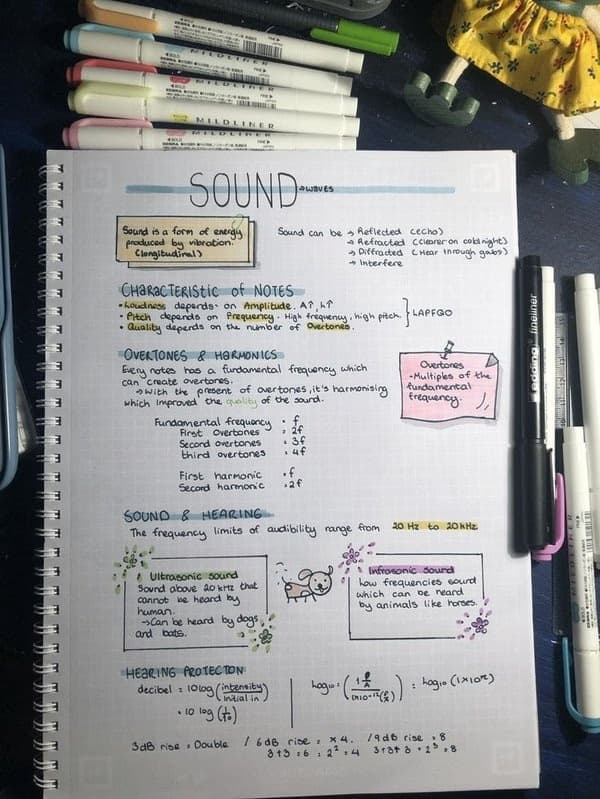 MILDLINER
MILDLINER
MILDLINER
MILDLINER
SOUND → WAVES
Sound is a form of energy
produced by vibration.
(longitudinal)
Sound can be → Reflected (echo)
→ Refracted (clearer on cold night)
→ Diffracted (Hear through gabs)
→ Interfere
CHARACTERISTIC OF NOTES
• Loudness depends on Amplitude. A↑, L↑
• Pitch depends on Frequency. High frequency, high pitch.
• Quality depends on the number of Overtones.
LAPFQO
OVERTONES & HARMONICS
Every notes has a fundamental frequency which
can create overtones.
→ With the present of overtones, it's harmonising
which improved the quality of the sound.
Overtones
- Multiples of the
fundamental
frequency.
Fundamental frequency : f
First Overtones : 2f
Second overtones : 3f
third overtones : 4f
First harmonic : f
Second harmonic : 2f
SOUND & HEARING
The frequency limits of audibility range from 20 Hz to 20 kHz
Ultrasonic sound
Sound above 20 kHz that
cannot be heard by
human.
→ Can be heard by dogs
and bats.
Infrasonic sound
low frequencies sound
which can be heard
by animals like horses.
HEARING PROTECTON
decibel = 10 log (intensity/Initial in)
= 10 log (I/I₀)
3dB rise = Double / 6dB rise = x4. / 9dB rise = 8
3+3 = 6 = 2² = 4 3+3+3 = 2³ = 8
edding fineliner
MILDLINER